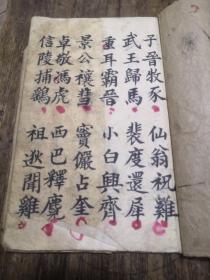 子晉牧豕 仙翁祝雞
武王歸馬 裴度還犀
重耳霸晉 小白興齊
景公禳彗 竇儼占奎
卓敬馮虎 西巴釋麑
信陵捕鷂 祖逖聞雞